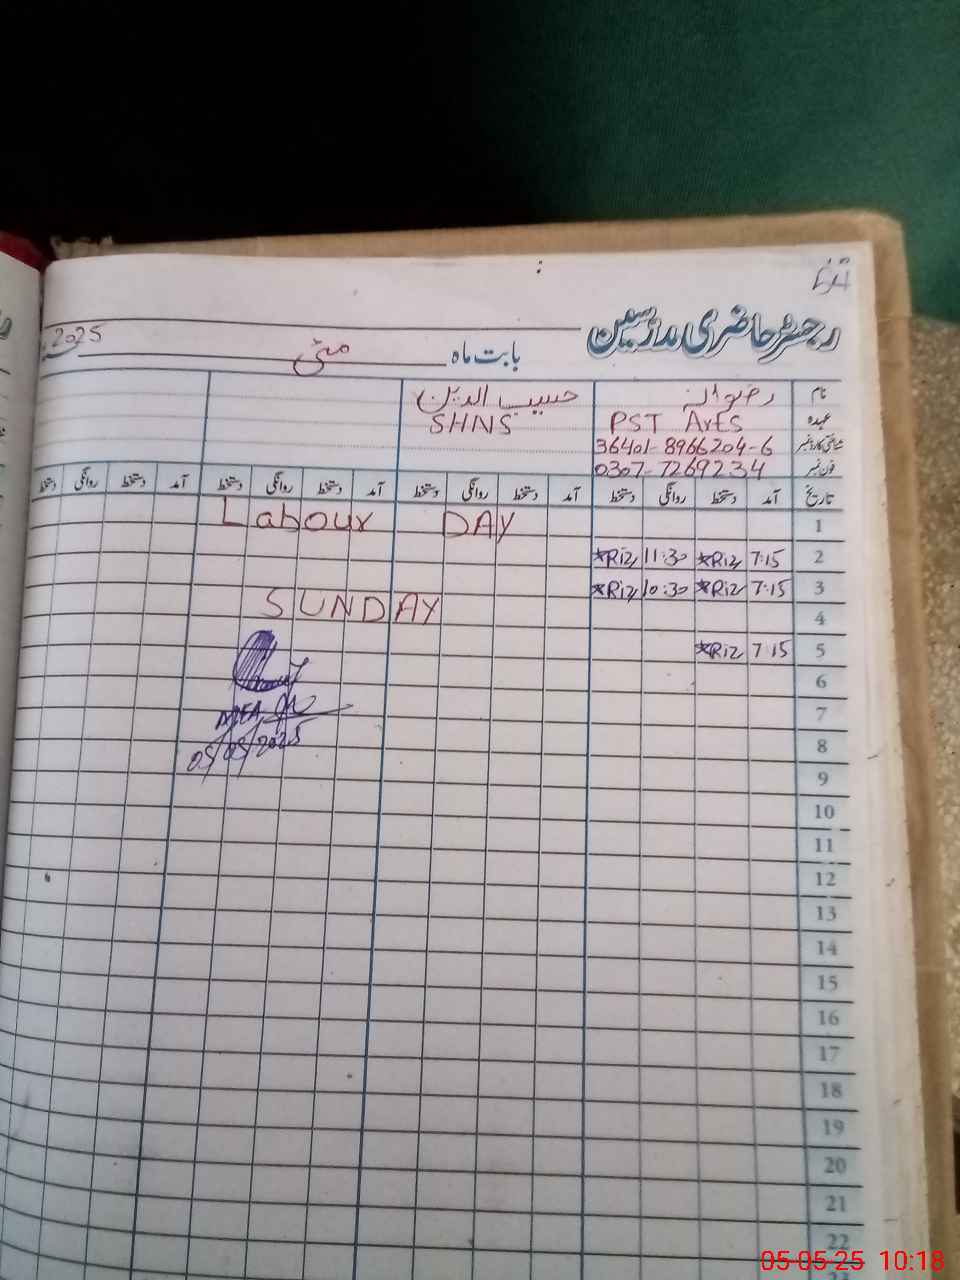 رجسٹر حاضری مدرسین
بابت ماہ مئی 2025
نام رضوان حسیب الدین
عہدہ PST Arts SHNS
شناختی کارڈ نمبر 36401-8966204-6
فون نمبر 0307-7269234
تاریخ آمد دستخط روانگی دستخط آمد دستخط روانگی دستخط آمد دستخط روانگی دستخط آمد دستخط روانگی دستخط
1 Labour DAY
2 7:15 *Riz 11:30 *Riz
3 7:15 *Riz 10:30 *Riz
4 SUNDAY
5 7:15 *Riz
6
7
05/05/2025
8
9
10
11
12
13
14
15
16
17
18
19
20
21
22
05-05-25 10:18